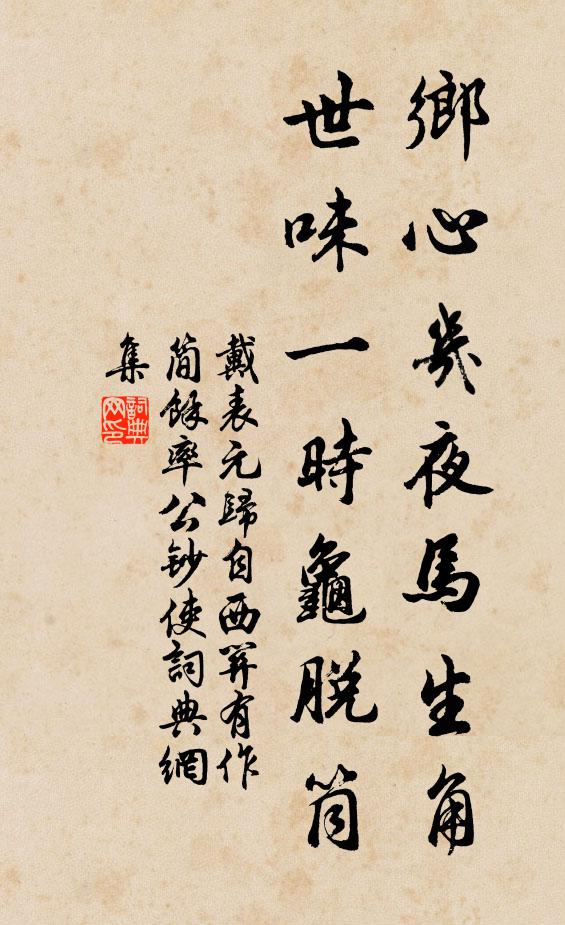 鄉心幾夜馬生角
世味一時龜脱筒
戴表元歸自西笄有作
簡餘率公鈔使詞典網
集
詞典
网印